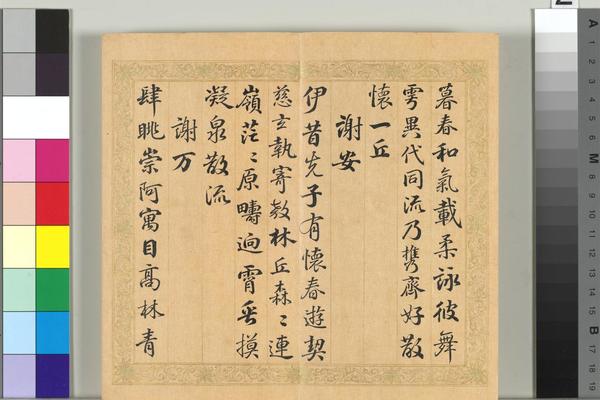 暮春和氣載柔詠彼舞
雩異代同流乃携齊好散
懷一丘
謝安
伊昔先子有懷春遊契
茲言執寄敖林丘森〻連
嶺茫〻原疇逈霄垂摸
凝泉散流
謝万
肆眺崇阿寓目高林青
A 1 2 3 4 5 6 M 8 9 10 11 12 13 14 15 B 17 18 19